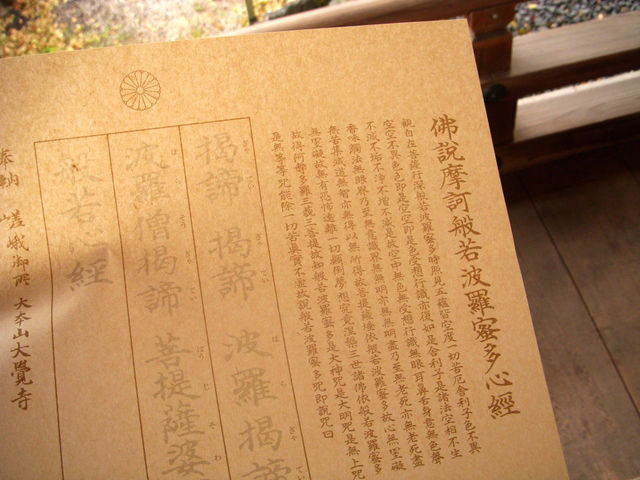 佛説摩訶般若波羅蜜多心經
觀自在菩薩行深般若波羅蜜多時照見五蘊皆空度一切苦厄舎利子色不異
空空不異色色即是空空即是色受想行識亦復如是舎利子是諸法空相不生
不滅不垢不淨不増不減是故空中無色無受想行識無眼耳鼻舌身意無色聲
香味觸法無眼界乃至無意識界無無明亦無無明盡乃至無老死亦無老死盡
無苦集滅道無智亦無得以無所得故菩提薩埵依般若波羅蜜多故心無罣礙
無罣礙故無有恐怖遠離一切顛倒夢想究竟涅槃三世諸佛依般若波羅蜜多
故得阿耨多羅三藐三菩提故知般若波羅蜜多是大神咒是大明咒是無上咒
是無等等咒能除一切苦眞實不虚故説般若波羅蜜多咒即説咒曰
揭諦 揭諦 波羅揭諦
波羅僧揭諦 菩提薩婆
般若心經
奉納 嵯峨御所 大本山大覺寺